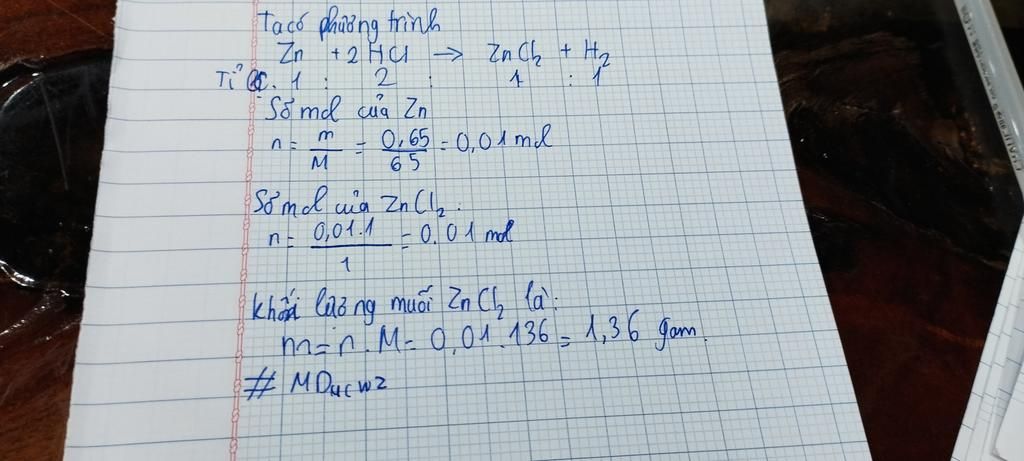 Ta có phương trình
Zn + 2HCl → ZnCl2 + H2
Tỉ lệ: 1 : 2 : 1 : 1
Số mol của Zn
n = m/M = 0,65/65 = 0,01 mol
Số mol của ZnCl2:
n = 0,01.1/1 = 0,01 mol
Khối lượng muối ZnCl2 là:
m = n.M = 0,01.136 = 1,36 gam.